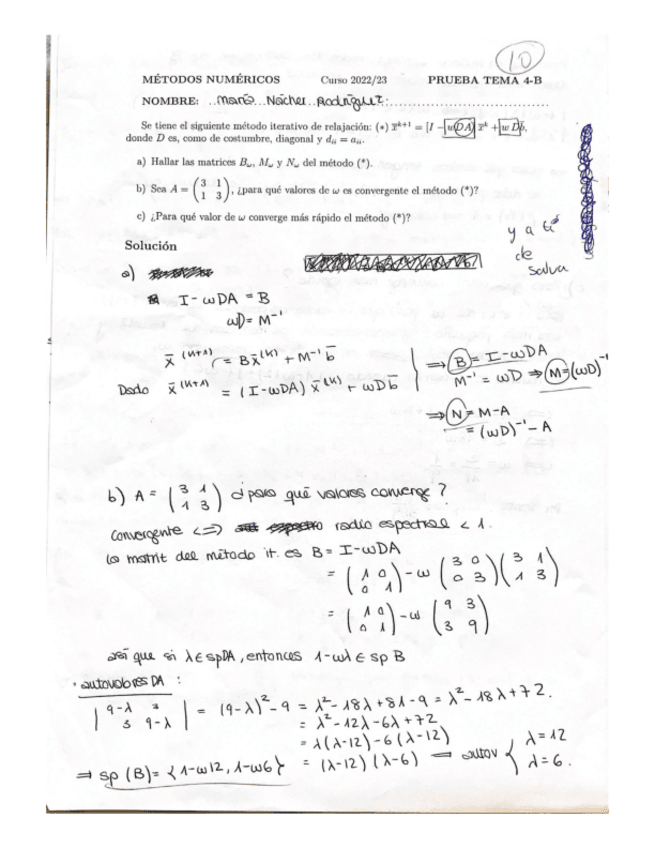 10
MÉTODOS NUMÉRICOS Curso 2022/23 PRUEBA TEMA 4-B
NOMBRE: María Nácher Rodríguez
Se tiene el siguiente método iterativo de relajación: (*) x̄^{k+1} = [I − ωDA] x̄^k + ω D b̄,
donde D es, como de costumbre, diagonal y d_{ii} = a_{ii}.
a) Hallar las matrices B_ω, M_ω y N_ω del método (*).
b) Sea A = (3 1; 1 3), ¿para qué valores de ω es convergente el método (*)?
c) ¿Para qué valor de ω converge más rápido el método (*)?
y a ti
de
salva
Solución
a)
I - ωDA = B
ωD = M⁻¹
x̄^(k+1) = Bx̄^(k) + M⁻¹ b̄
Dado x̄^(k+1) = (I-ωDA) x̄^(k) + ωD b̄
⇒ B = I-ωDA
M⁻¹ = ωD ⇒ M=(ωD)⁻¹
⇒ N = M-A
= (ωD)⁻¹ - A
b) A = (3 1; 1 3) ¿para qué valores converge?
Convergente <=> radio espectral < 1.
la matriz del método it. es B = I-ωDA
= (1 0; 0 1) - ω (3 0; 0 3)(3 1; 1 3)
= (1 0; 0 1) - ω (9 3; 3 9)
así que si λ ∈ sp DA, entonces 1-ωλ ∈ sp B
· autovalores DA :
|9-λ 3; 3 9-λ| = (9-λ)² - 9 = λ² - 18λ + 81 - 9 = λ² - 18λ + 72.
= λ² - 12λ - 6λ + 72
= λ(λ-12) - 6(λ-12)
= (λ-12)(λ-6) autov { λ = 12
λ = 6.
⇒ sp (B) = {1-ω12, 1-ω6}